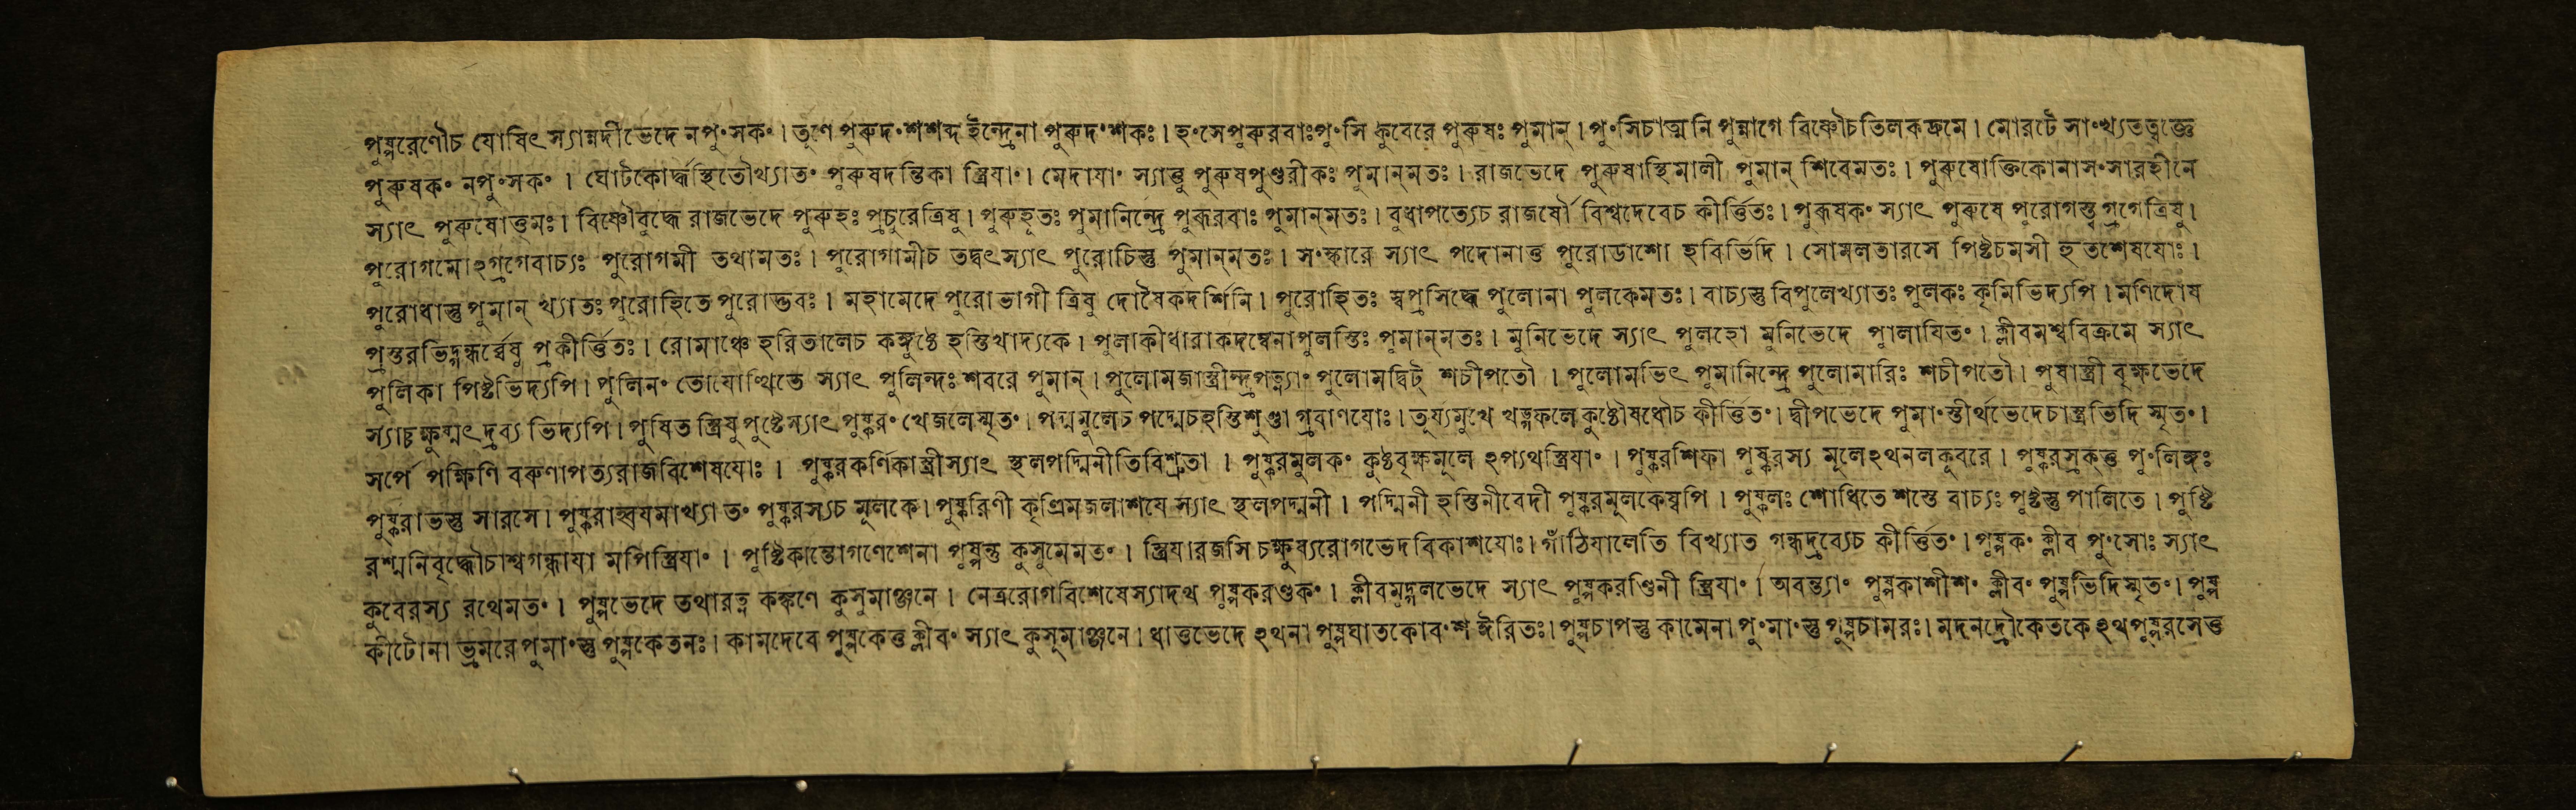 পুষ্পরেণৌচ যোষিৎ স্যান্নদীভেদে নপুংসকং । তৃণে পুরুদংশশব্দ ইন্দ্রেনা পুরুদংশকঃ । হংসেপুরুরবাঃপুংসি কুবেরে পুরুষঃ পুমান্ । পুংসিচাত্মনি পুন্নাগে বিষ্ণৌচতিলকদ্রুমে । মোরটে সাংখ্যতত্বজ্ঞে
পুরুষকং নপুংসকং । ঘোটকোর্দ্ধস্থিতৌখ্যাতং পুরুষদন্তিকা স্ত্রিযাং । মেদাযাং স্যাত্তু পুরুষপুণ্ডরীকঃ পুমান্মতঃ । রাজভেদে পুরুষাস্থিমালী পুমান্ শিবেমতঃ । পুরুষোক্তিকোনাসংসারহীনে
স্যাৎ পুরুষোত্তমঃ । বিষ্ণৌবুদ্ধে রাজভেদে পুরুহঃ প্রচুরেত্রিষু । পুরুহূতঃ পুমানিন্দ্রে পুরূরবাঃ পুমান্মতঃ । বুধাপত্যেচ রাজর্ষৌ বিশ্বদেবেচ কীর্ত্তিতঃ । পুরূষকং স্যাৎ পুরুষে পুরোগস্ত্বগ্রগেত্রিষু ।
পুরোগমোঽগ্রগেবাচ্যঃ পুরোগমী তথামতঃ । পুরোগামীচ তদ্বৎস্যাৎ পুরোচিস্তু পুমান্মতঃ । সংস্কারে স্যাৎ পদোনাত্ত পুরোডাশো হবির্ভিদি । সোমলতারসে পিষ্টচমসী হুতশেষযোঃ ।
পুরোধাস্তু পুমান্ খ্যাতঃ পুরোহিতে পুরোদ্ভবঃ । মহামেদে পুরোভাগী ত্রিষু দোষৈকদর্শিনি । পুরোহিতঃ স্বপ্রসিদ্ধে পুলোনা পুলকেমতঃ । বাচ্যস্তু বিপুলেখ্যাতঃ পুলকঃ কৃমিভিদ্যপি । মণিদোষ
প্রস্তরভিদ্গন্ধর্ব্বেষু প্রকীর্ত্তিতঃ । রোমাঞ্চে হরিতালেচ কঙ্গুষ্ঠে হস্তিখাদ্যকে । পুলাকীধারাকদম্বেনাপুলস্তিঃ পুমান্মতঃ । মুনিভেদে স্যাৎ পুলহো মুনিভেদে পুলাযিতং । ক্লীবমশ্ববিক্রমে স্যাৎ
পুলিকা পিষ্টভিদ্যপি । পুলিনং তোযোত্থিতে স্যাৎ পুলিন্দঃ শবরে পুমান্ । পুলোমজাস্ত্রীন্দ্রপত্ন্যাং পুলোমদ্বিট্ শচীপতৌ । পুলোমভিৎ পুমানিন্দ্রে পুলোমারিঃ শচীপতৌ । পুষাস্ত্রী বৃক্ষভেদে
স্যাচ্চক্ষুষ্মৎ দ্রব্য ভিদ্যপি । পুষিত স্ত্রিষু পুষ্টেস্যাৎ পুষ্করং খেজলেস্মৃতং । পদ্মমূলেচ পদ্মেচহস্তিশুণ্ডা গ্রবাণযোঃ । তূর্য্যমুখে খড়্গফলে কুষ্ঠৌষধৌচ কীর্ত্তিতং । দ্বীপভেদে পুমাংস্তীর্থভেদেচাস্ত্রভিদি স্মৃতং ।
সর্পে পক্ষিণি বরুণাপত্যরাজবিশেষযোঃ । পুষ্করকর্ণিকাস্ত্রীস্যাৎ স্থলপদ্মিনীতিবিশ্রুতা । পুষ্করমূলকং কুষ্ঠবৃক্ষমূলে ঽপ্যথস্ত্রিযাং । পুষ্করশিফা পুষ্করস্য মূলেঽথনলকূবরে । পুষ্করস্রক্ত্তু পুংলিঙ্গঃ
পুষ্করাভস্তু সারসে । পুষ্করাহ্বযমাখ্যাতং পুষ্করস্যচ মূলকে । পুষ্করিণী কৃত্রিমজলাশযে স্যাৎ স্থলপদ্মনী । পদ্মিনী হস্তিনীবেদী পুষ্করমূলকেষ্বপি । পুষ্কলঃ শোধিতে শস্তে বাচ্যঃ পুষ্টস্তু পালিতে । পুষ্টি
রশ্মনিবৃদ্ধৌচাশ্বগন্ধাযা মপিস্ত্রিযাং । পুষ্টিকান্তোগণেশেনা পুষ্পন্তু কুসুমেমতং । স্ত্রিযারজসি চক্ষুষ্যরোগভেদবিকাশযোঃ । গাঁঠিযালেতি বিখ্যাত গন্ধদ্রব্যেচ কীর্ত্তিতং । পুষ্পকং ক্লীব পুংসোঃ স্যাৎ
কুবেরস্য রথেমতং । পুষ্পভেদে তথারত্ন কঙ্কণে কুসুমাঞ্জনে । নেত্ররোগবিশেষেস্যাদথ পুষ্পকরণ্ডকং । ক্লীবমুদ্গলভেদে স্যাৎ পুষ্পকরণ্ডিনী স্ত্রিযাং । অবন্ত্যাং পুষ্পকাশীশং ক্লীবং পুষ্পভিদিস্মৃতং । পুষ্প
কীটোনা ভ্রমরেপুমাংস্তু পুষ্পকেতনঃ । কামদেবে পুষ্পকেত্তু ক্লীবং স্যাৎ কুসুমাঞ্জনে । ধাত্তভেদে ঽথনা পুষ্পঘাতকোবংশ ঈরিতঃ । পুষ্পচাপস্তু কামেনা পুংমাংস্তু পুষ্পচামরঃ । মদনদ্রৌকেতকে ঽথপুষ্পরসেত্তু